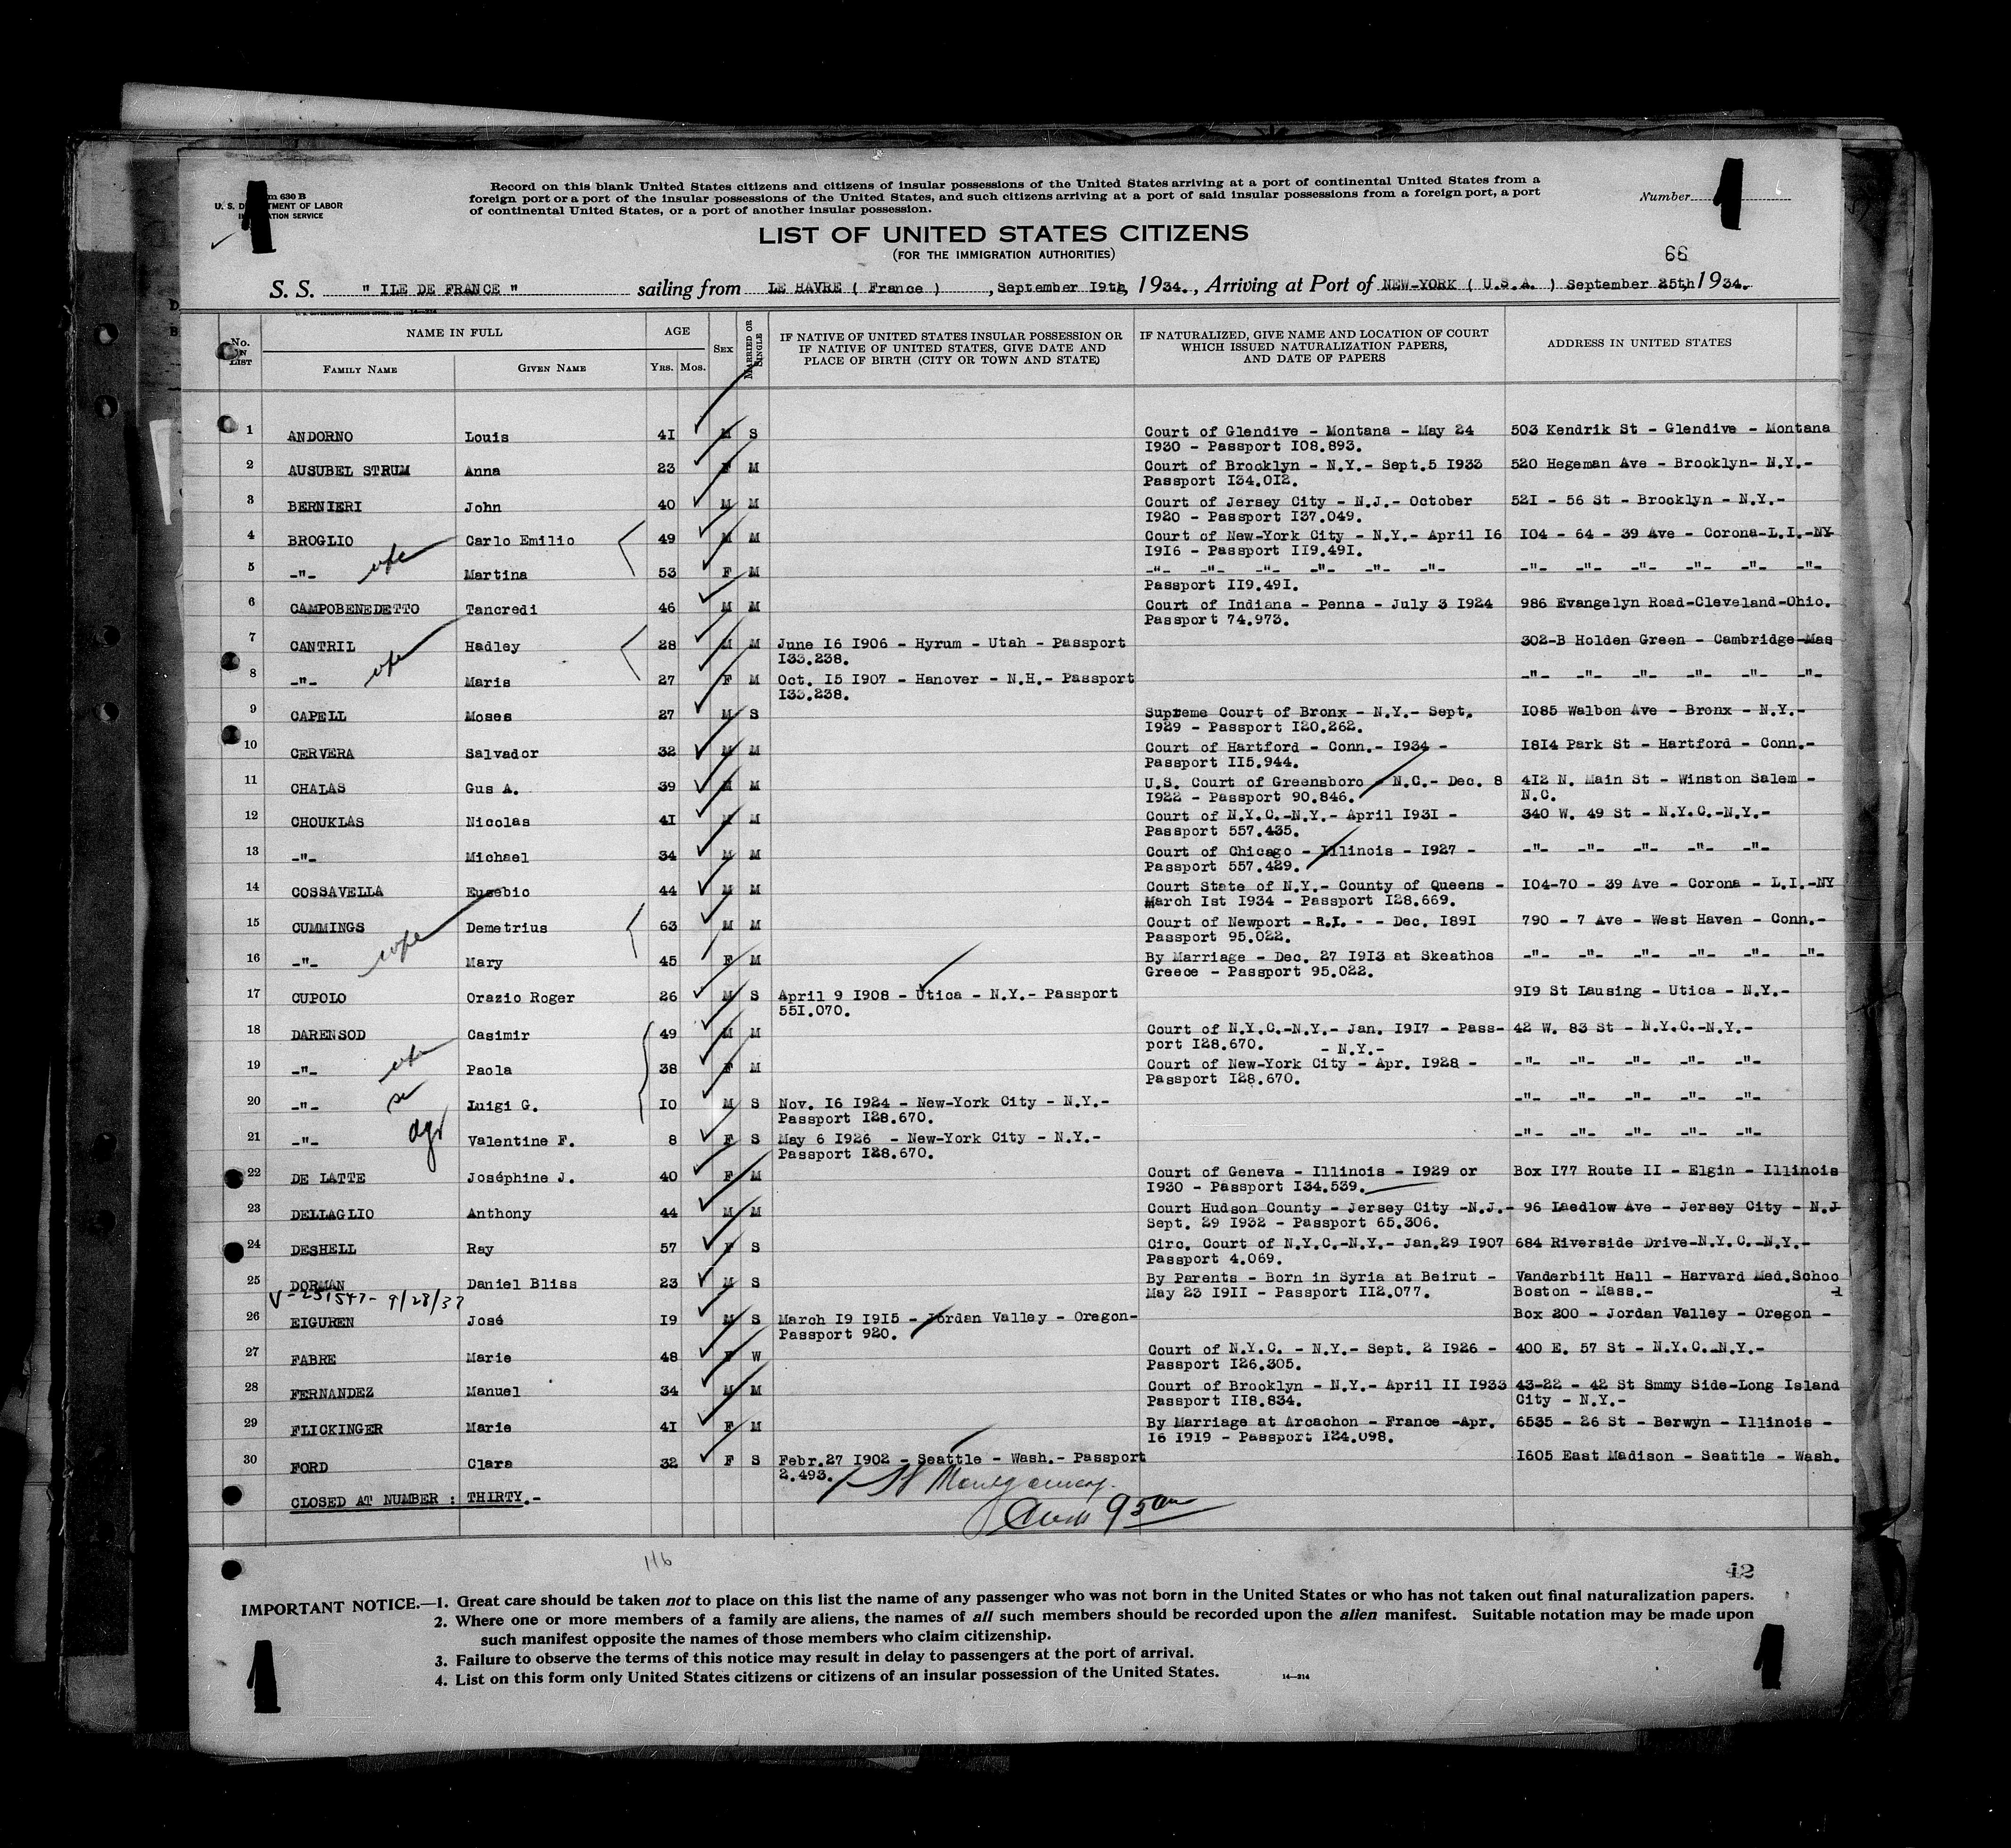 Record on this blank United States citizens and citizens of insular possessions of the United States arriving at a port of continental United States from a
foreign port or a port of the insular possessions of the United States, and such citizens arriving at a port of said insular possessions from a foreign port, a port
of continental United States, or a port of another insular possession.
630 B
U. S. D TMENT OF LABOR
ATION SERVICE
Number
1
1
LIST OF UNITED STATES CITIZENS
(FOR THE IMMIGRATION AUTHORITIES)
66
S. S. " ILE DE FRANCE " sailing from LE HAVRE ( France ) , September 19th, 1934. , Arriving at Port of NEW-YORK ( U.S.A. ) September 25th, 1934.
No. ON LIST
NAME IN FULL
FAMILY NAME
GIVEN NAME
AGE
YRS.
MOS.
SEX
MARRIED OR SINGLE
IF NATIVE OF UNITED STATES INSULAR POSSESSION OR
IF NATIVE OF UNITED STATES, GIVE DATE AND
PLACE OF BIRTH (CITY OR TOWN AND STATE)
IF NATURALIZED, GIVE NAME AND LOCATION OF COURT
WHICH ISSUED NATURALIZATION PAPERS,
AND DATE OF PAPERS
ADDRESS IN UNITED STATES
1 ANDORNO Louis 4I M S Court of Glendive - Montana - May 24 503 Kendrik St - Glendive - Montana
I930 - Passport I08.893.
2 AUSUBEL STRUM Anna 23 F M Court of Brooklyn - N.Y.- Sept.5 I933 520 Hegeman Ave - Brooklyn- N.Y.-
Passport I34.0I2.
3 BERNIERI John 40 M M Court of Jersey City - N.J.- October 52I - 56 St - Brooklyn - N.Y.-
I920 - Passport I37.049.
4 BROGLIO Carlo Emilio 49 M M Court of New-York City - N.Y.- April I6 I04 - 64 - 39 Ave - Corona-L.I.-NY
I9I6 - Passport II9.49I.
5 -"- wife Martina 53 F M -"- -"- -"- -"- -"- -"- -"- -"- -"- -"- -"- -"-
Passport II9.49I.
6 CAMPOBENEDETTO Tancredi 46 M M Court of Indiana - Penna - July 3 I924 986 Evangelyn Road-Cleveland-Ohio.
Passport 74.973.
7 CANTRIL Hadley 28 M M June I6 I906 - Hyrum - Utah - Passport 302-B Holden Green - Cambridge-Mas
I33.238.
8 -"- wife Maris 27 F M Oct. I5 I907 - Hanover - N.H.- Passport -"- -"- -"- -"- -"- -"-
I33.238.
9 CAPELL Moses 27 M S Supreme Court of Bronx - N.Y.- Sept. I085 Walbon Ave - Bronx - N.Y.-
I929 - Passport I20.262.
10 CERVERA Salvador 32 M M Court of Hartford - Conn.- I934 - I8I4 Park St - Hartford - Conn.-
Passport II5.944.
11 CHALAS Gus A. 39 M M U.S. Court of Greensboro - N.C.- Dec. 8 4I2 N. Main St - Winston Salem -
I922 - Passport 90.846. N.C.
12 CHOUKLAS Nicolas 4I M M Court of N.Y.C.-N.Y.- April I93I - 340 W. 49 St - N.Y.C.-N.Y.-
Passport 557.435.
13 -"- Michael 34 M M Court of Chicago - Illinois - I927 - -"- -"- -"- -"- -"-
Passport 557.429.
14 COSSAVELLA Eusebio 44 M M Court State of N.Y.- County of Queens - I04-70 - 39 Ave - Corona - L.I.-NY
March Ist I934 - Passport I28.669.
15 CUMMINGS Demetrius 63 M M Court of Newport -R.I. - - Dec. I89I 790 - 7 Ave - West Haven - Conn.-
Passport 95.022.
16 -"- wife Mary 45 F M By Marriage - Dec. 27 I9I3 at Skeathos -"- -"- -"- -"- -"- -"-
Greece - Passport 95.022.
17 CUPOLO Orazio Roger 26 M S April 9 I908 - Utica - N.Y.- Passport 9I9 St Lausing - Utica - N.Y.-
55I.070.
18 DARENSOD Casimir 49 M M Court of N.Y.C.-N.Y.- Jan. I9I7 - Pass- 42 W. 83 St - N.Y.C.-N.Y.-
port I28.670. - N.Y.-
19 -"- wife Paola 38 F M Court of New-York City - Apr. I928 - -"- -"- -"- -"- -"-
Passport I28.670.
20 -"- Luigi G. I0 M S Nov. I6 I924 - New-York City - N.Y.- -"- -"- -"- -"- -"-
Passport I28.670.
21 -"- dgr Valentine F. 8 F S May 6 I926 - New-York City - N.Y.- -"- -"- -"- -"- -"-
Passport I28.670.
22 DE LATTE Joséphine J. 40 F M Court of Geneva - Illinois - I929 or Box I77 Route II - Elgin - Illinois
I930 - Passport I34.539.
23 DELLAGLIO Anthony 44 M M Court Hudson County - Jersey City -N.J.- 96 Laedlow Ave - Jersey City - N.J
Sept. 29 I932 - Passport 65.306.
24 DESHELL Ray 57 F S Circ. Court of N.Y.C.-N.Y.- Jan.29 I907 684 Riverside Drive-N.Y.C.-N.Y.-
Passport 4.069.
25 DORMAN Daniel Bliss 23 M S By Parents - Born in Syria at Beirut - Vanderbilt Hall - Harvard Med.Schoo
May 23 I9II - Passport II2.077. Boston - Mass.- l
V-251547- 9/28/37
26 EIGUREN José I9 M S March I9 I9I5 - Jordan Valley - Oregon- Box 200 - Jordan Valley - Oregon -
Passport 920.
27 FABRE Marie 48 F W Court of N.Y.C. - N.Y.- Sept. 2 I926 - 400 E. 57 St - N.Y.C.-N.Y.-
Passport I26.305.
28 FERNANDEZ Manuel 34 M M Court of Brooklyn - N.Y.- April II I933 43-22 - 42 St Smmy Side-Long Island
Passport II8.834. City - N.Y.-
29 FLICKINGER Marie 4I F M By Marriage at Arcachon - France -Apr. 6535 - 26 St - Berwyn - Illinois -
I6 I9I9 - Passport I24.098.
30 FORD Clara 32 F S Febr.27 I902 - Seattle - Wash.- Passport I605 East Madison - Seattle - Wash.
2.493.
Montgomery
CLOSED AT NUMBER : THIRTY.-
116
42
IMPORTANT NOTICE.—1. Great care should be taken not to place on this list the name of any passenger who was not born in the United States or who has not taken out final naturalization papers.
2. Where one or more members of a family are aliens, the names of all such members should be recorded upon the alien manifest. Suitable notation may be made upon
such manifest opposite the names of those members who claim citizenship.
3. Failure to observe the terms of this notice may result in delay to passengers at the port of arrival.
4. List on this form only United States citizens or citizens of an insular possession of the United States.
14—214
1
1